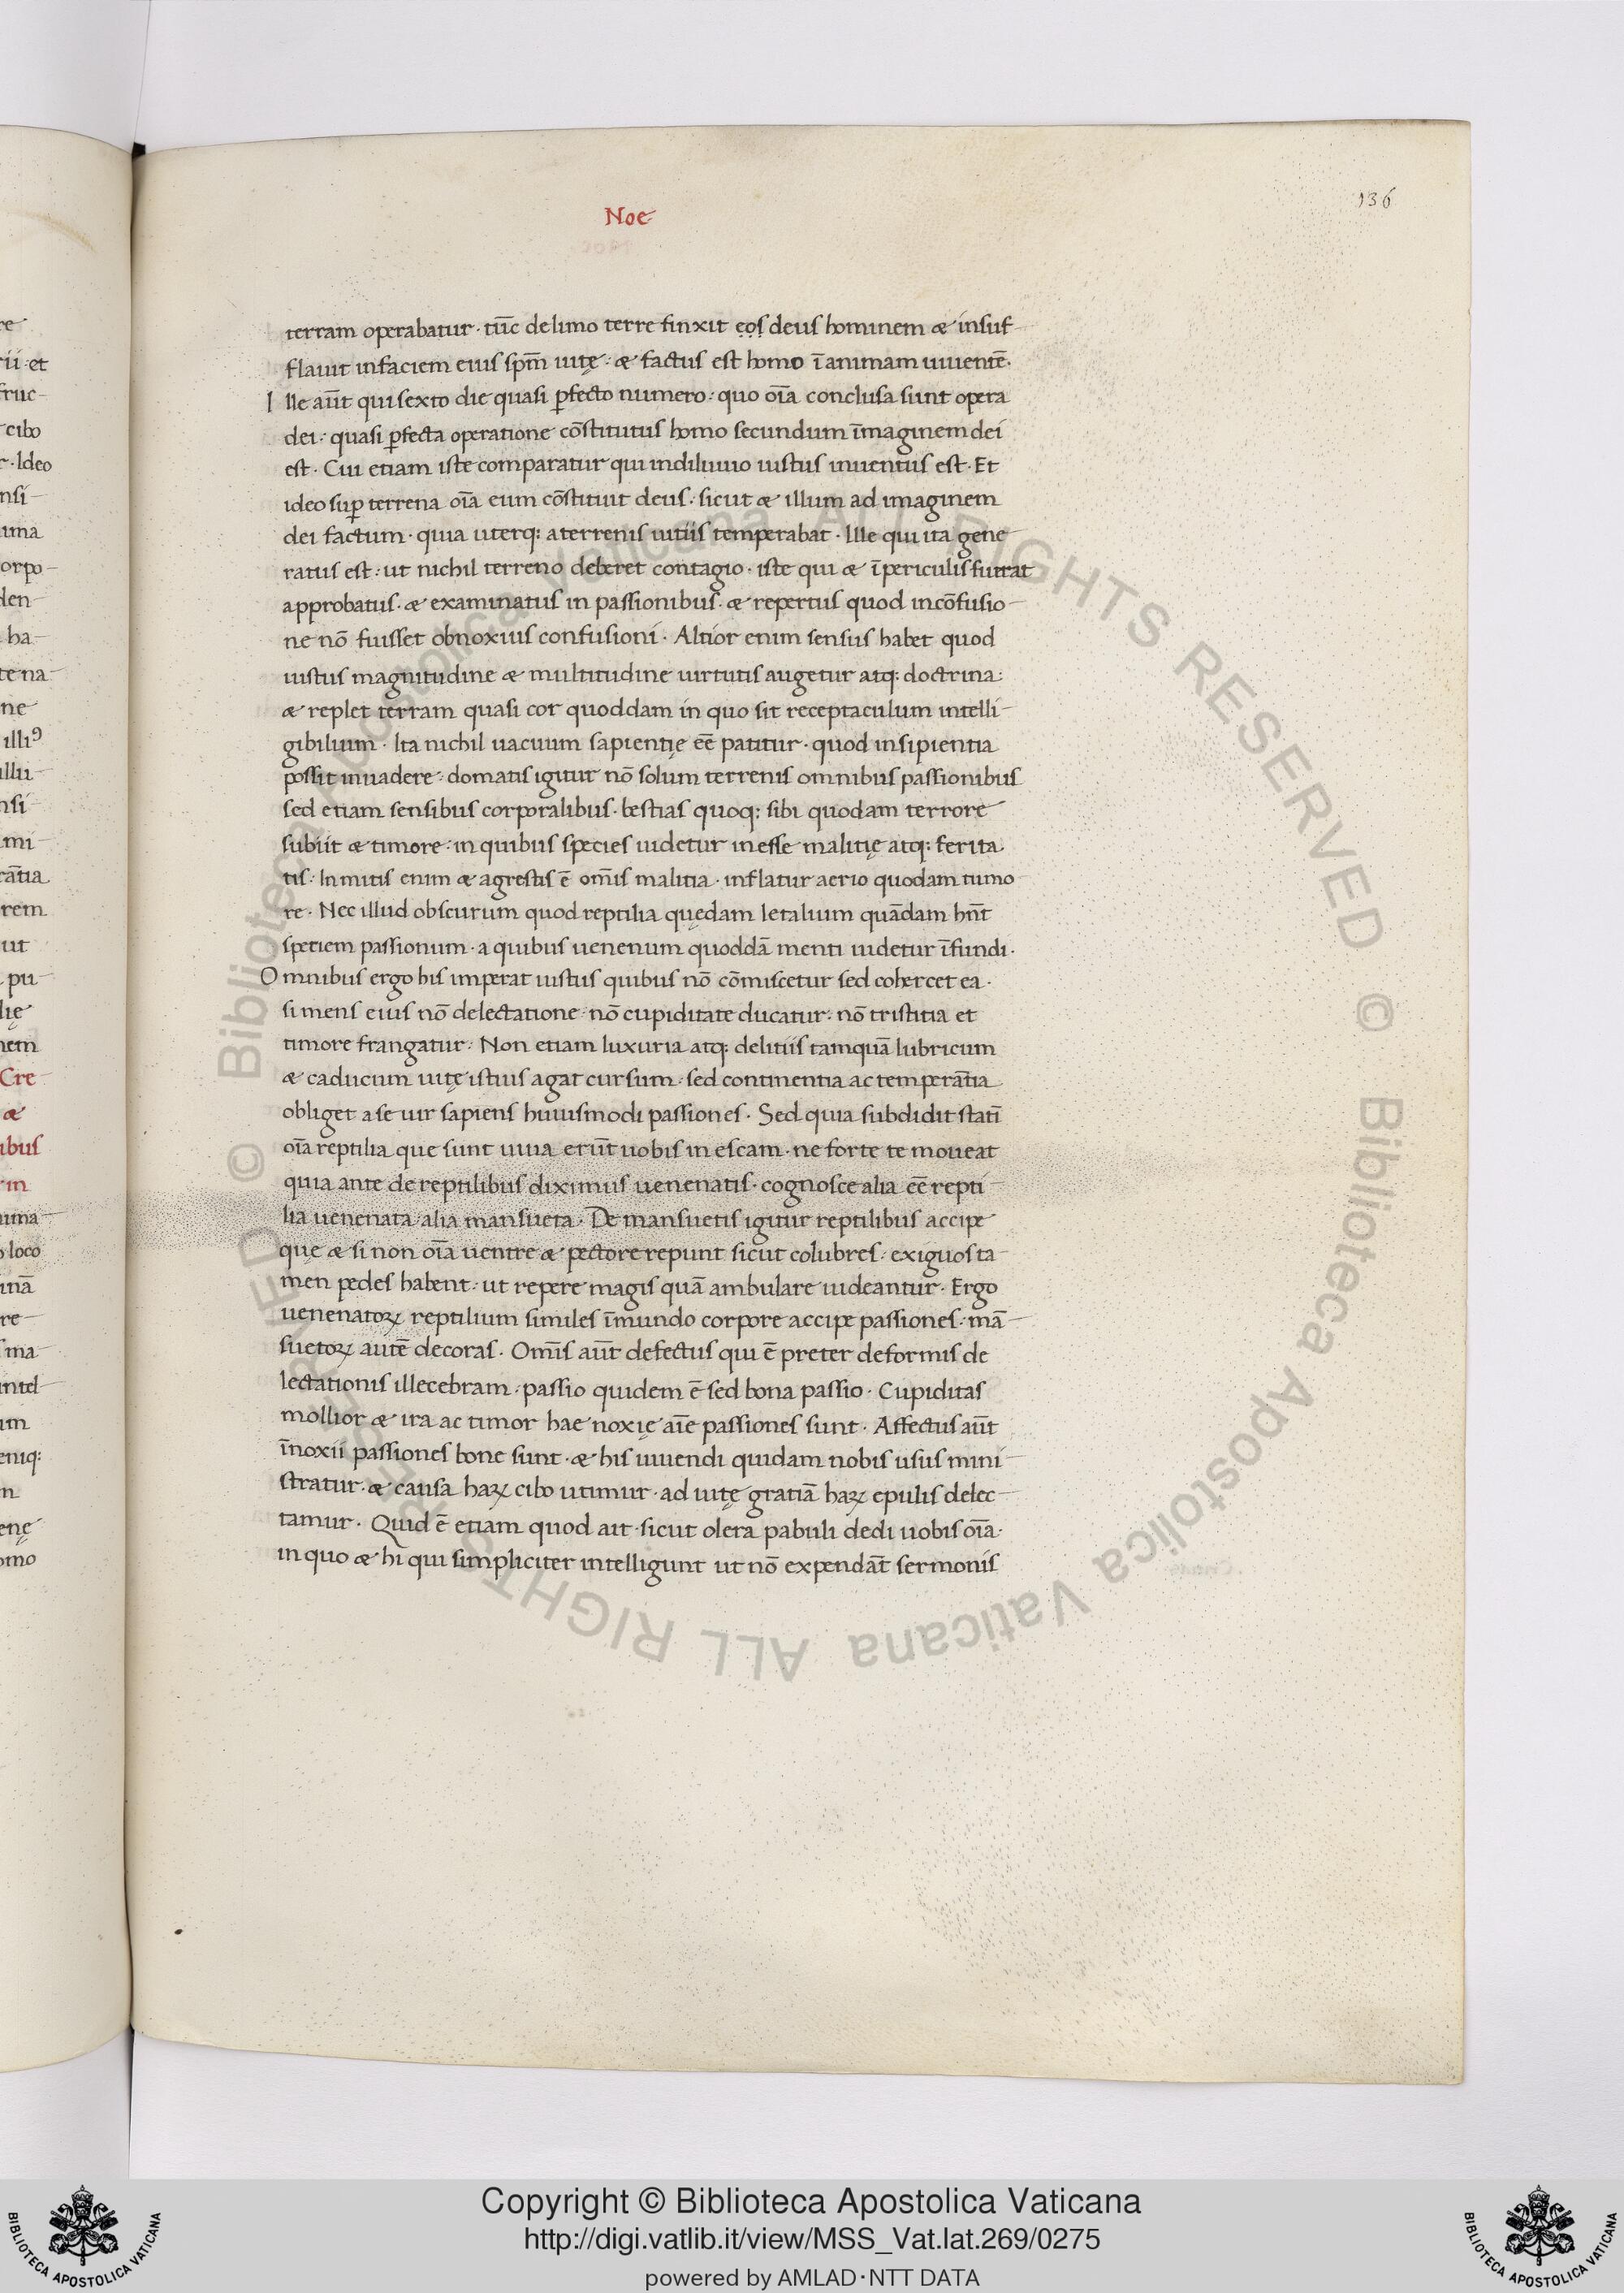 Noe
136
terram operabatur · tūc de limo terre finxit eos deus hominem & insuf-
flauit in faciem eius spm̄ uitę : & factus est homo ī animam uiuentē.
Ille aūt qui sexto die quasi ꝑfecto numero : quo oīa conclusa sunt opera
dei : quasi ꝑfecta operatione cōstitutus homo secundum īmaginem dei
est · Cui etiam iste comparatur qui in diluuio iustus inuentus est · Et
ideo suꝑ terrena oīa eum cōstituit deus · sicut & illum ad imaginem
dei factum · quia uterq: a terrenis uitiis temperabat · Ille qui ita gene-
ratus est : ut nichil terreno deberet contagio · iste qui & ī periculis fuerat
approbatus · & examinatus in passionibus · & repertus quod in cōfusio-
ne nō fuisset obnoxius confusioni · Altior enim sensus habet quod
iustus magnitudine & multitudine uirtutis augetur atq: doctrina :
& replet terram quasi cor quoddam in quo sit receptaculum intelli-
gibilium · Ita nichil uacuum sapientię eē patitur · quod insipientia
possit inuadere : domatis igitur nō solum terrenis omnibus passionibus
sed etiam sensibus corporalibus · bestias quoq: sibi quodam terrore
subiit & timore : in quibus species uidetur inesse malitię atq: ferita
tis : Inmitis enim & agrestis ē om̄is malitia · inflatur aerio quodam tumo
re · Nec illud obscurum quod reptilia quędam letalium quādam hn̄t
spetiem passionum · a quibus uenenum quoddā menti uidetur īfundi ·
Omnibus ergo his imperat iustus quibus nō cōmiscetur sed cohercet ea ·
si mens eius nō delectatione · nō cupiditate ducatur : nō tristitia et
timore frangatur : Non etiam luxuria atq: delitiis tamquā lubricum
& caducum uitę istius agat cursum : sed continentia ac temperātia
obliget a se uir sapiens huiusmodi passiones · Sed quia subdidit statī
oīa reptilia que sunt uiua erūt uobis in escam · ne forte te moueat
quia ante de reptilibus diximus uenenatis · cognosce alia eē repti-
lia uenenata : alia mansueta · De mansuetis igitur reptilibus accipe
quę & si non oīa uentre & pectore repunt sicut colubres : exiguos ta-
men pedes habent : ut repere magis quā ambulare uideantur · Ergo
uenenatoꝝ reptilium similes īmundo corpore accipe passiones : mā-
suetoꝝ autē decoras · Om̄is aūt defectus qui ē preter deformis de
lectationis illecebram : passio quidem ē sed bona passio · Cupiditas
mollior & ira ac timor hae noxię aīe passiones sunt · Affectus aūt
īnoxii passiones bone sunt · & his uiuendi quidam nobis usus mini-
stratur · & causa haꝝ cibo utimur · ad uitę gratiā haꝝ epulis delec-
tamur · Quid ē etiam quod ait · sicut olera pabuli dedi uobis oīa ·
in quo & hi qui simpliciter intelligunt ut nō expendāt sermonis
Copyright © Biblioteca Apostolica Vaticana
http://digi.vatlib.it/view/MSS_Vat.lat.269/0275
powered by AMLAD·NTT DATA